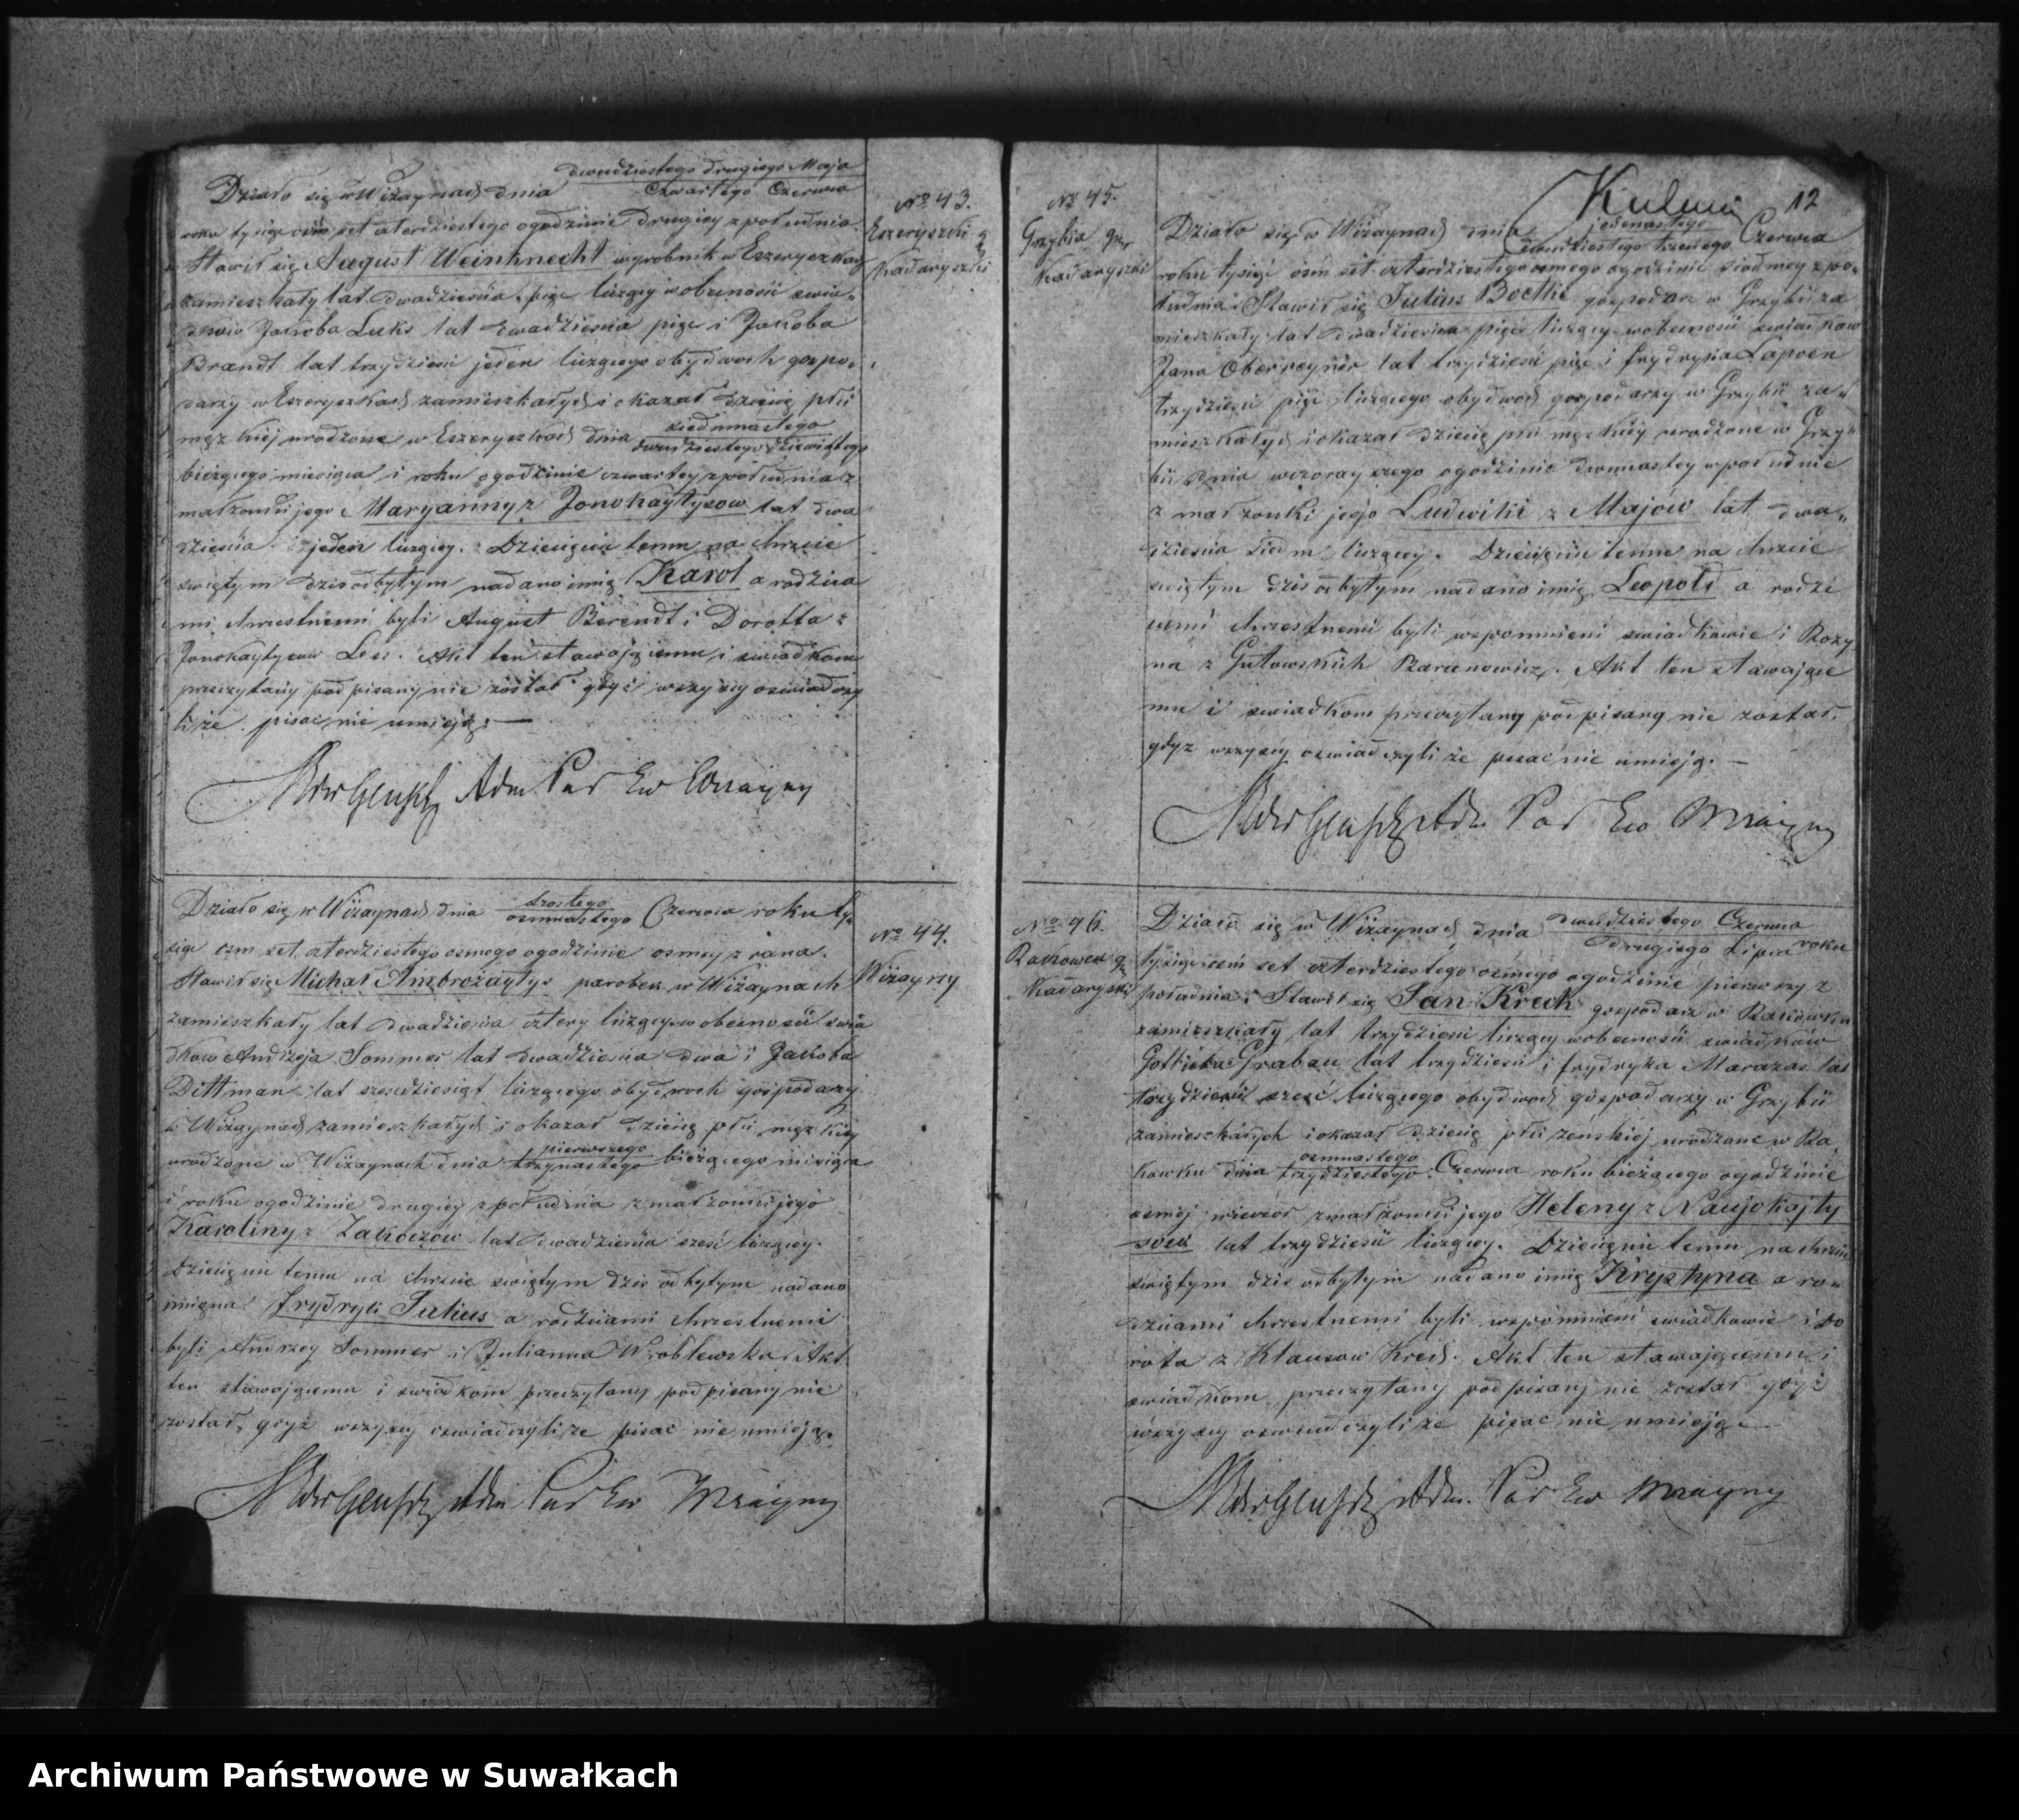 Działo się w Wiżaynach dnia dwudziestego drugiego Maja
czwartego Czerwca
roku tysiąc ośm set czterdziestego ogodzinie drugiey z południa
Stawił się August Weinknecht wyrobnik w Eszeryszkach
zamieszkały lat dwadzieścia pięc liczący w obecności świa-
dków Jakoba Luks lat dwadzieścia pięc i Jakoba
Brandt lat trzydzieści jeden liczącego obydwoch gospo-
darzy w Eszeryszkach zamieszkałych i okazał dziecię płci
męzkiéj urodzone w Eszeryszkach dnia siedmnastego
dwudziestego dziewiątego
bieżącego miesiąca i roku ogodzinie czwartey z południa z
małżonki jego Maryanny z Jonokaytysow lat dwa
dzieścia jeden liczącey. Dziecięciu temu na chrzcie
świętym dziś odbytym nadano imię Karol a rodzica
mi chrzestnemi byli August Berendt i Dorotta z
JonokaytysowLess. Akt ten stawającemu i świadkom
przeczytany podpisany nie został gdyż wszyscy oświadczy
li że pisać nie umieją.
Adm Par Ew Wizayny
No 43.
Eszeryszki g
Kadaryszki
Działo się w Wiżaynach dnia szóstego
osmnastego Czerwca roku ty-
siąc ośm set czterdziestego osmego ogodzinie osmey z rana.
Stawił się Michał Ambrożaytys parobek w Wiżaynach
zamieszkały lat dwadzieścia cztery liczący w obecności świa
dkow Andrzeja Sommer lat dwadzieścia dwa i Jakoba
Dittman lat sześćdziesiąt liczącego obydwoch gospodarzy
w Wiżaynach zamieszkałych i okazał dziecię płci męzkiey
urodzone w Wiżaynach dnia pierwszego
trzynastego bieżącego miesiąca
i roku ogodzinie drugiey z południa z małżonki jego
Karoliny z Zakoszow lat dwadzieścia sześć liczącey.
Dziecięciu temu na chrzcie świętym dziś odbytym nadano
imiona Frydryk Julius a rodzicami chrzestnemi
byli Andrzey Sommer i Julianna Wróblewska. Akt
ten stawającemu i świadkom przeczytany podpisany nie
został, gdyż wszyscy oświadczyli że pisać nie umieją.
Adm Par Ew Wizayny
No 44.
Wiżayny
12
No 45.
Grzybia gm
Kadaryszki
Działo się w Wiżaynach dnia jedenastego
dwudziestego trzeciego Czerwca
roku tysiąc ośm set czterdziestego osmego ogodzinie siódmey z po-
łudnia. Stawił się Julius Boettke gospodarz w Grzybii za
mieszkały lat dwadzieścia pięc liczący w obecności świadkow
Jana Oberreynér lat trzydzieści pięc i Frydryka Lapoen
trzydzieści pięc liczącego obydwoch gospodarzy w Grzybii za-
mieszkałych i okazał dziecię płci męzkiéy urodzone w Grzy-
bii dnia wczorayszego ogodzinie dwunastey w południe
z małżonki jego Ludwiki z Majów lat dwa-
dzieścia siedm liczącey. Dziecięciu temu na chrzcie
świętym dziś odbytym nadano imię Leopold a rodzi
cami chrzestnemi byli wspomnieni świadkowie i Rozy
na z Gutowskich. Akt ten stawające
mu i świadkom przeczytany podpisany nie został,
gdyż wszyscy oświadczyli że pisać nie umieją.
Adm Par Ew Wizayny
No 46.
Rakowek gm
Kadaryszki
Działo się w Wiżaynach dnia dwudziestego Czerwca
drugiego Lipca roku
tysiąc ośm set czterdziestego osmego ogodzinie pierwszy z
południa. Stawił się Jan Krech gospodarz w Rakówku
zamieszkały lat trzydzieści liczący w obecności świadków
Gottlieba Grabau lat trzydzieści i Frydryka Marazas lat
trzydzieści sześć liczącego obydwoch gospodarzy w Grzybii
zamieszkałych i okazał dziecię płci żeńskiéj urodzone w Ra
kowku dnia osmnastego
trzydziestego Czerwca roku bieżącego ogodzinie
osméj wieczor z małżonki jego Heleny z Naujokajty
sów lat trzydzieści liczącey. Dziecięciu temu na chrzcie
świętym dziś odbytym nadano imię Krystyna a ro-
dzicami chrzestnemi byli wspomnieni świadkowie i Do
rota z Klausow Krech. Akt ten stawającemu i
świadkom przeczytany podpisany nie został gdyż
wszyscy oświadczyli że pisać nie umieją
Adm. Par Ew Wizayny
Archiwum Państwowe w Suwałkach